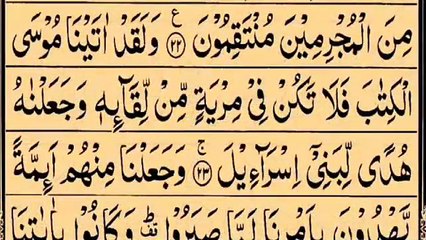 مِنَ الْمُجْرِمِيْنَ مُنْتَقِمُوْنَ ﴿۲۲﴾ ع وَلَقَدْ اٰتَيْنَا مُوْسَى
الْكِتٰبَ فَلَا تَكُنْ فِيْ مِرْيَةٍ مِّنْ لِّقَآئِهٖ وَجَعَلْنٰهُ
هُدًى لِّبَنِيْٓ اِسْرَآءِيْلَ ﴿۲۳﴾ ج وَجَعَلْنَا مِنْهُمْ اَئِمَّةً
يَّهْدُوْنَ بِاَمْرِنَا لَمَّا صَبَرُوْا وَكَانُوْا بِاٰيٰتِنَا